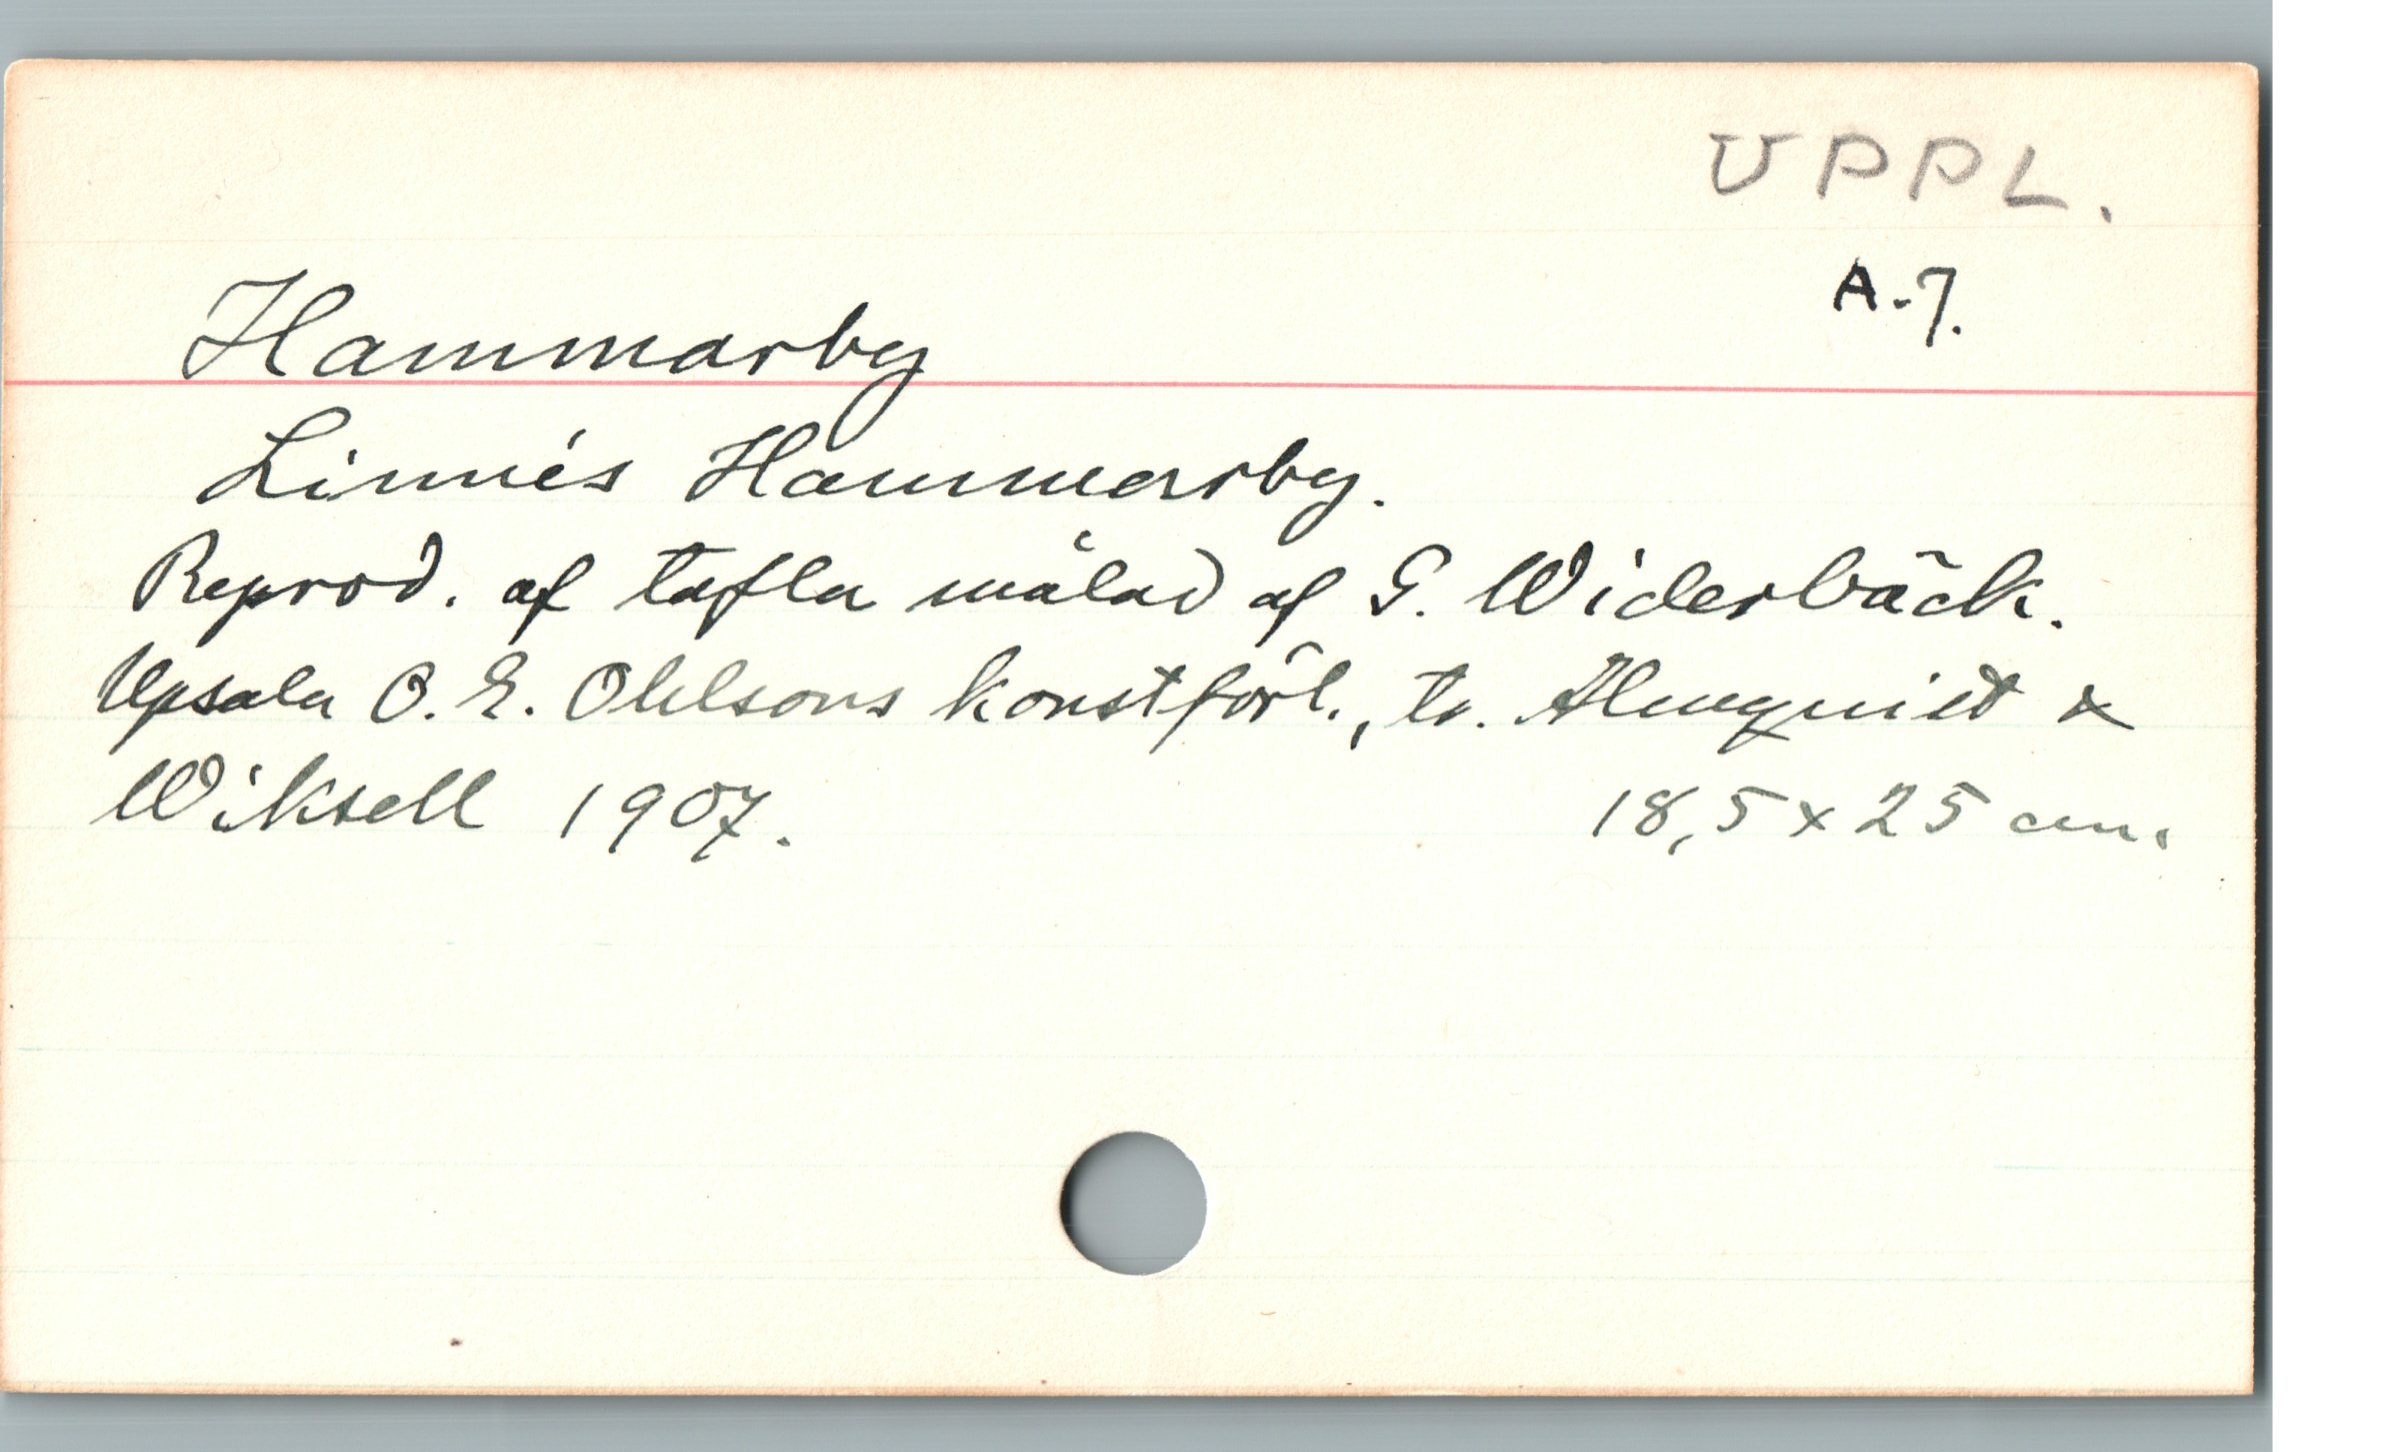 UPPL.
A.7.
Hammarby
Linnés Hammarby.
Reprod. af tafla målad af G. Widerbäck.
Upsala O. E. Ohlsons konstförl., tr. Almquist &
Wiksell 1907. 18,5 x 25 cm.